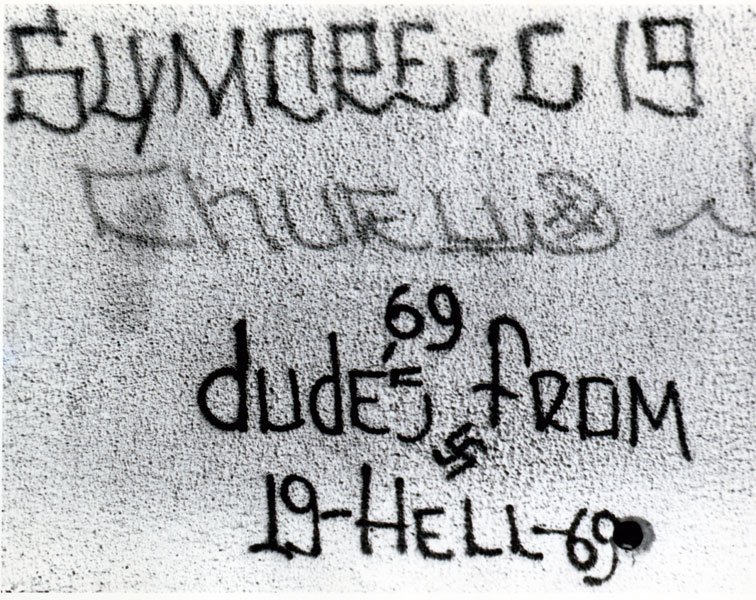 SYMOREiC 19
ChUELLO
69
dudE'S fROM
19-HELL-69